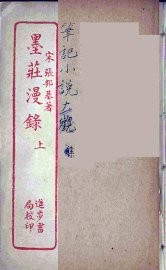 宋張邦基著
墨莊漫錄 上
進步書
局校印
筆記小說